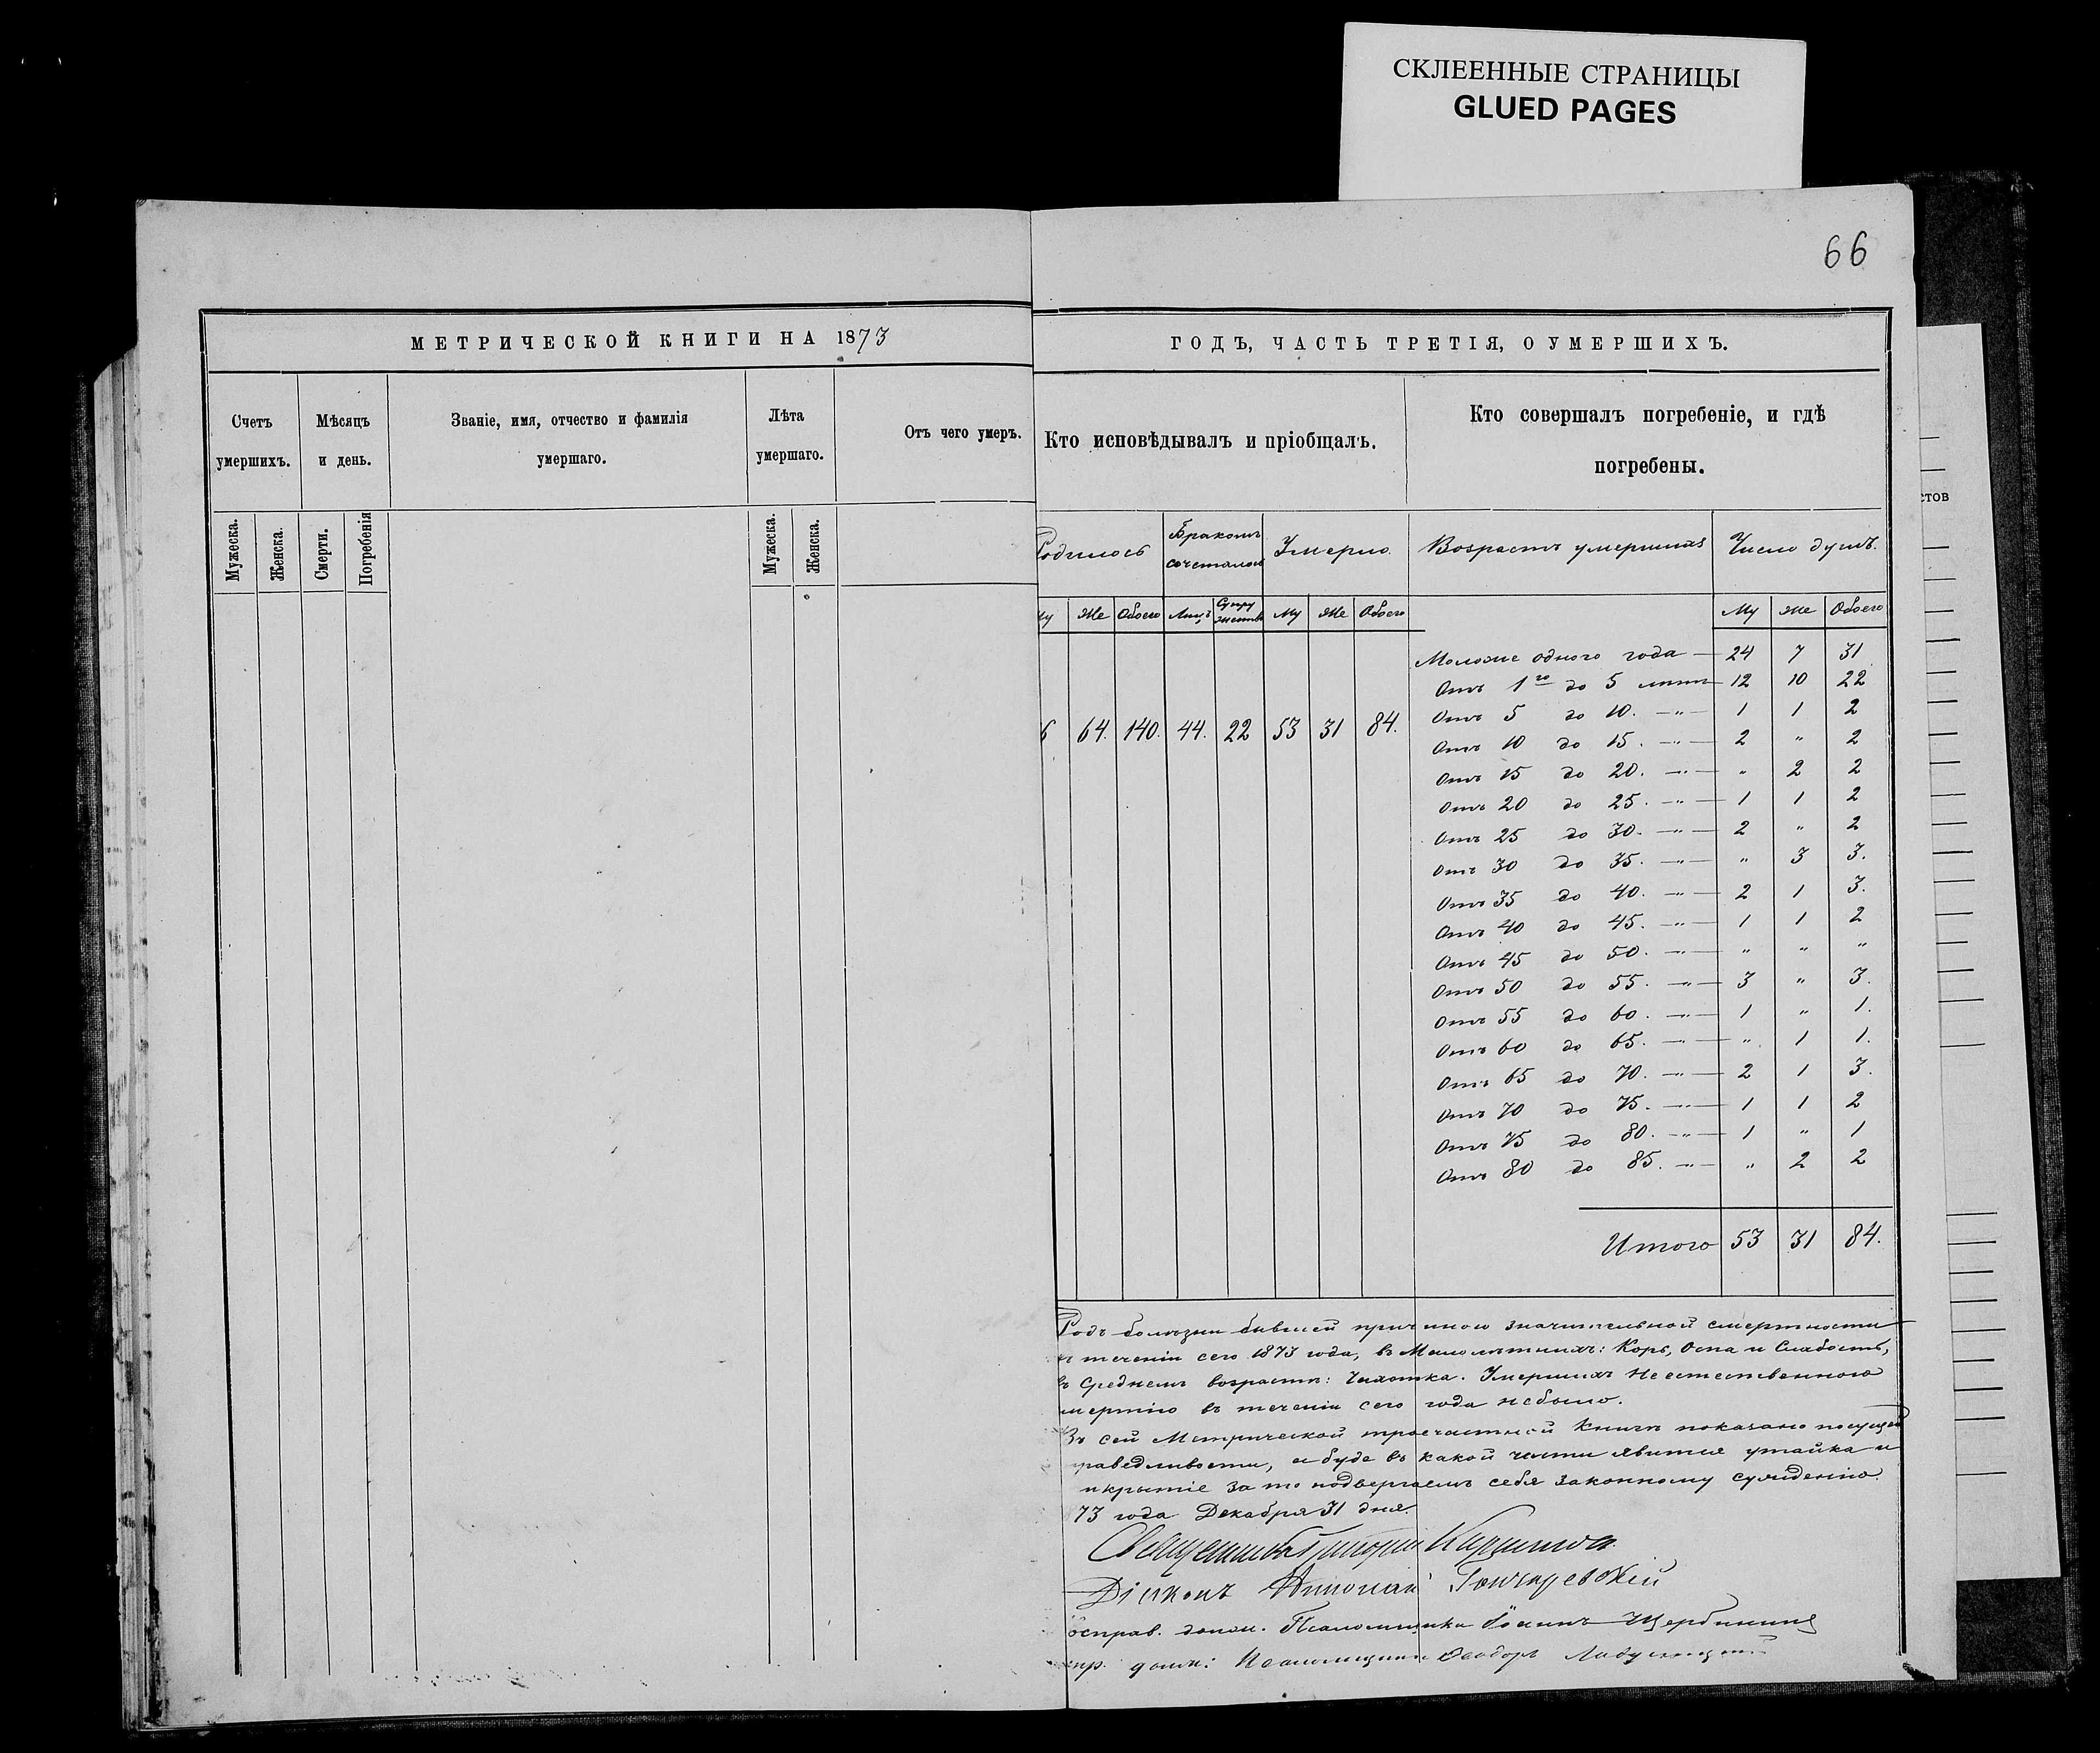 СКЛЕЕННЫЕ СТРАНИЦЫ
GLUED PAGES
66
МЕТРИЧЕСКОЙ КНИГИ НА 1873
ГОДЪ, ЧАСТЬ ТРЕТІЯ, О УМЕРШИХЪ.
Счетъ умершихъ.
Мѣсяцъ и день.
Званіе, имя, отчество и фамилія умершаго.
Лѣта умершаго.
Отъ чего умеръ.
Кто исповѣдывалъ и пріобщалъ.
Кто совершалъ погребеніе, и гдѣ погребены.
Мужеска. Женска. Смерти. Погребенія Мужеска. Женска.
Родилось Бракомъ сочеталось Умерло. Возрастъ умершихъ Число душъ.
Му Же Обоего Лицъ Супружествъ Му Же Обоего Му Же Обоего
6 64. 140. 44. 22 53 31 84.
Моложе одного года — 24 7 31
Отъ 1го до 5 лѣтъ — 12 10 22
Отъ 5 до 10. —"— 1 1 2
Отъ 10 до 15. —"— 2 " 2
Отъ 15 до 20. —"— " 2 2
Отъ 20 до 25. —"— 1 1 2
Отъ 25 до 30. —"— 2 " 2
Отъ 30 до 35. —"— " 3 3.
Отъ 35 до 40. —"— 2 1 3.
Отъ 40 до 45. —"— 1 1 2
Отъ 45 до 50. —"— " " "
Отъ 50 до 55. —"— 3 " 3.
Отъ 55 до 60. —"— 1 " 1.
Отъ 60 до 65. —"— " 1 1.
Отъ 65 до 70. —"— 2 1 3.
Отъ 70 до 75. —"— 1 1 2
Отъ 75 до 80. —"— 1 " 1
Отъ 80 до 85. —"— " 2 2
Итого 53 31 84.
Родъ болѣзни бывшей причиною значительной смертности
теченіи сего 1873 года, въ Малолѣтнихъ: Корь, Оспа и Слабость,
въ Среднемъ возрастѣ: Чахотка. Умершихъ Неестественною
мертію въ теченіи сего года небыло.
Въ сей Метрической троечастной Книгѣ показано посущей
раведливости, а буде въ какой части явится утайка и
крытіе за то подвергаемъ себя законному сужденію.
73 года Декабря 31 дня.
Священникъ Григорій
Діаконъ Николай Гончаревскій
справ. долж. Псаломщика Іоаннъ Щербининъ
пр. долж: Псаломщика Феодоръ
стов